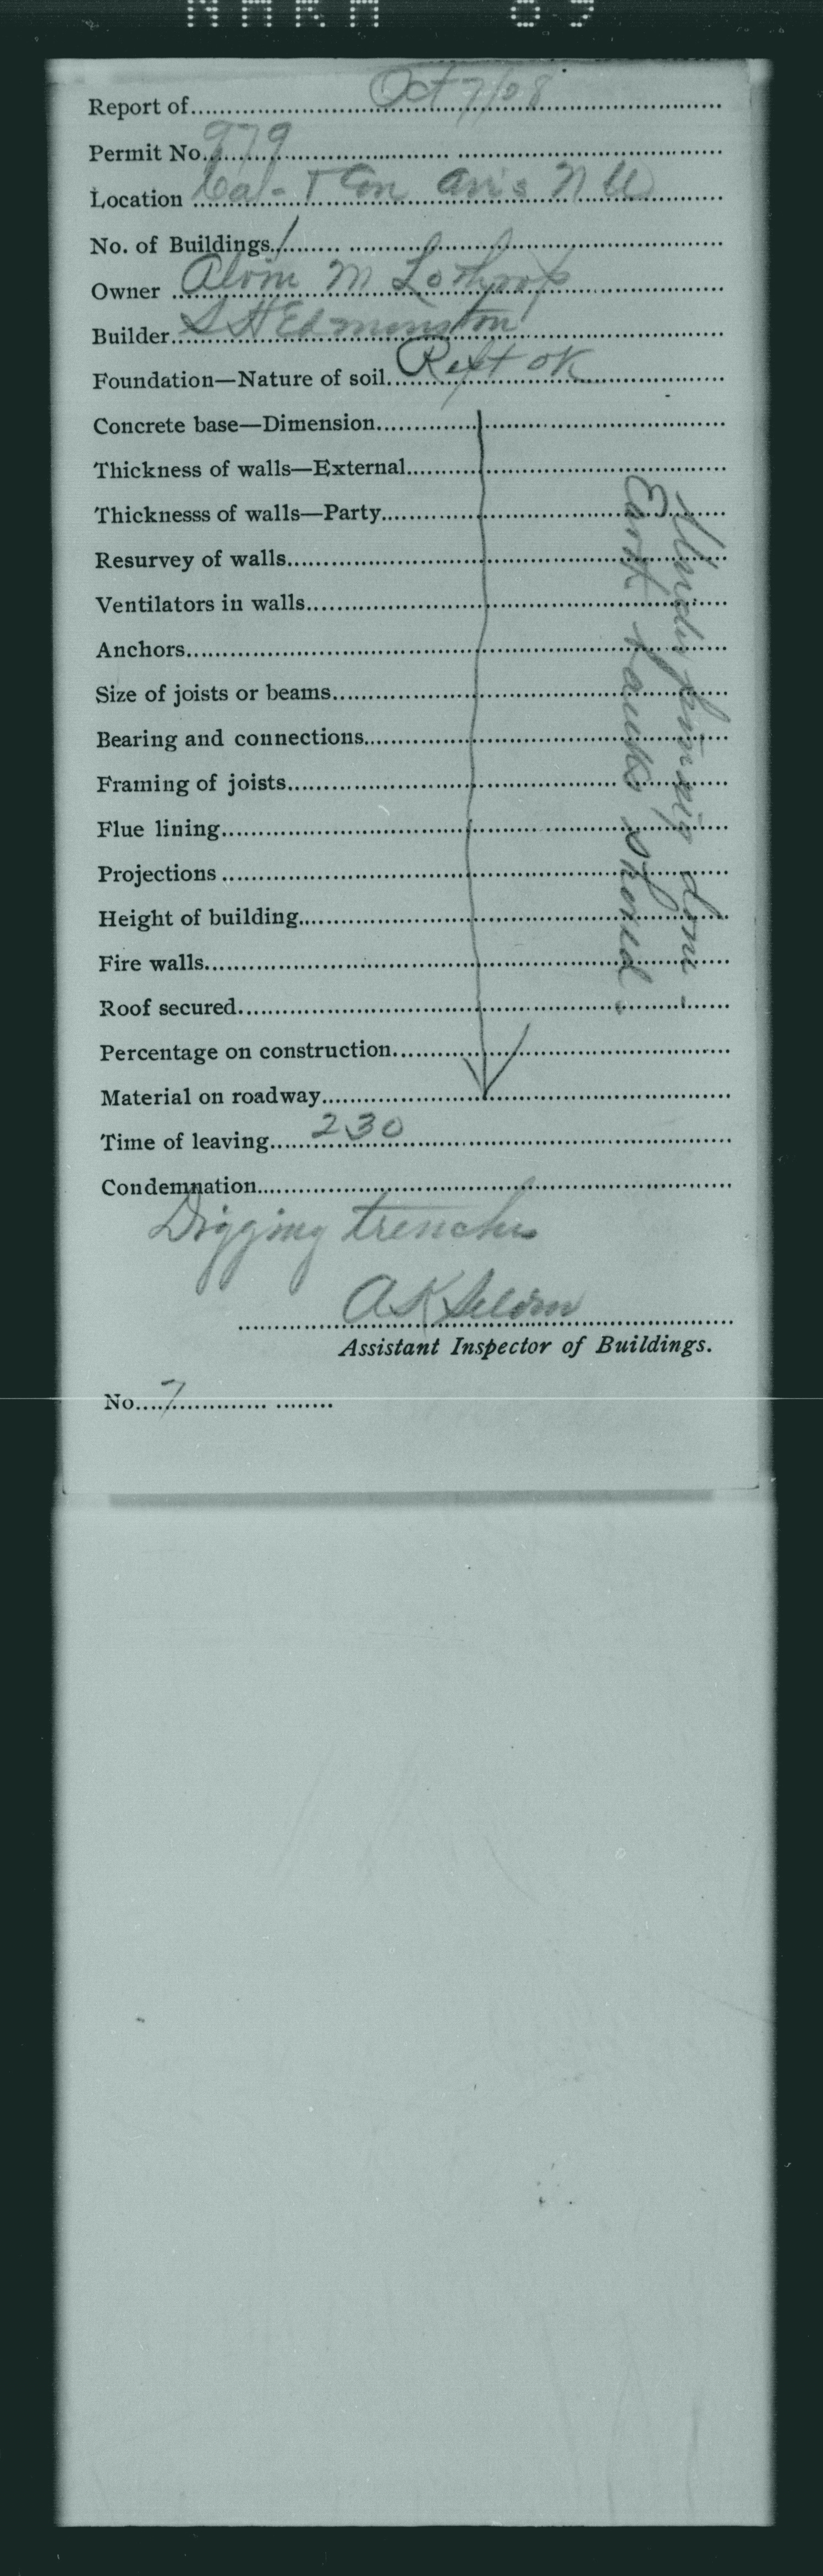 Report of Oct 7/08
Permit No. 979
Location Cal - & Con Av's N W
No. of Buildings 1
Owner Alvin M Lothrop
Builder S H Edmonston
Foundation—Nature of soil Rept OK
Concrete base—Dimension
Thickness of walls—External
Thicknesss of walls—Party
Resurvey of walls
Ventilators in walls
Anchors
Size of joists or beams
Bearing and connections
Framing of joists
Flue lining
Projections
Height of building
Fire walls
Roof secured
Percentage on construction
Material on roadway
Time of leaving 2 30
Condemnation
Digging trenches
A K
Assistant Inspector of Buildings.
No. 7
done -
Earth banks shored -